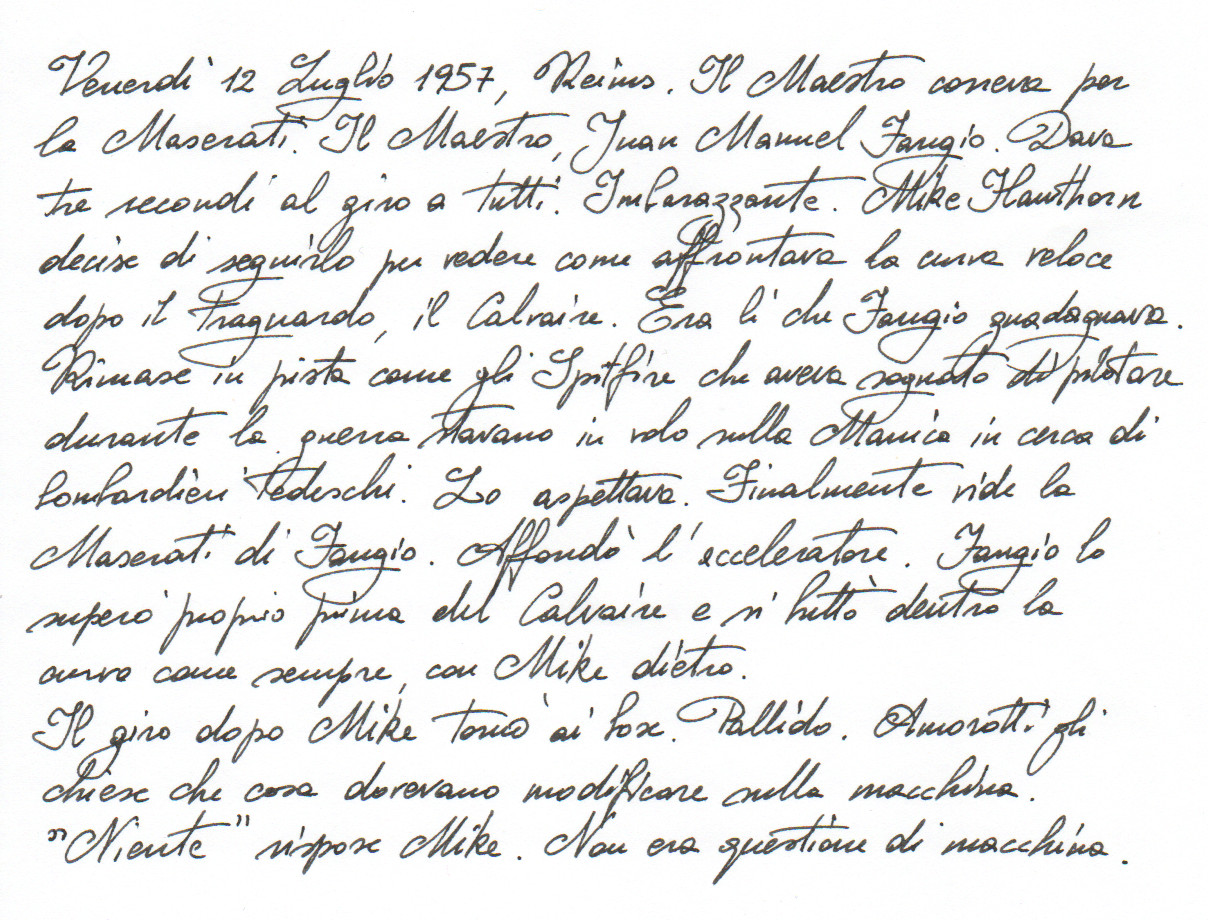 Venerdì 12 Luglio 1957, Reims. Il Maestro correva per
la Maserati. Il Maestro, Juan Manuel Fangio. Dava
tre secondi al giro a tutti. Imbarazzante. Mike Hawthorn
decise di seguirlo per vedere come affrontava la curva veloce
dopo il traguardo, il Calvaire. Era lì che Fangio guadagnava.
Rimase in pista come gli Spitfire che aveva sognato di pilotare
durante la guerra stavano in volo sulla Manica in cerca di
bombardieri tedeschi. Lo aspettava. Finalmente vide la
Maserati di Fangio. Affondò l'acceleratore. Fangio lo
superò proprio prima del Calvaire e si buttò dentro la
curva come sempre, con Mike dietro.
Il giro dopo Mike tornò ai box. Pallido. Amorotti gli
chiese che cosa dovevano modificare sulla macchina.
"Niente" rispose Mike. Non era questione di macchina.